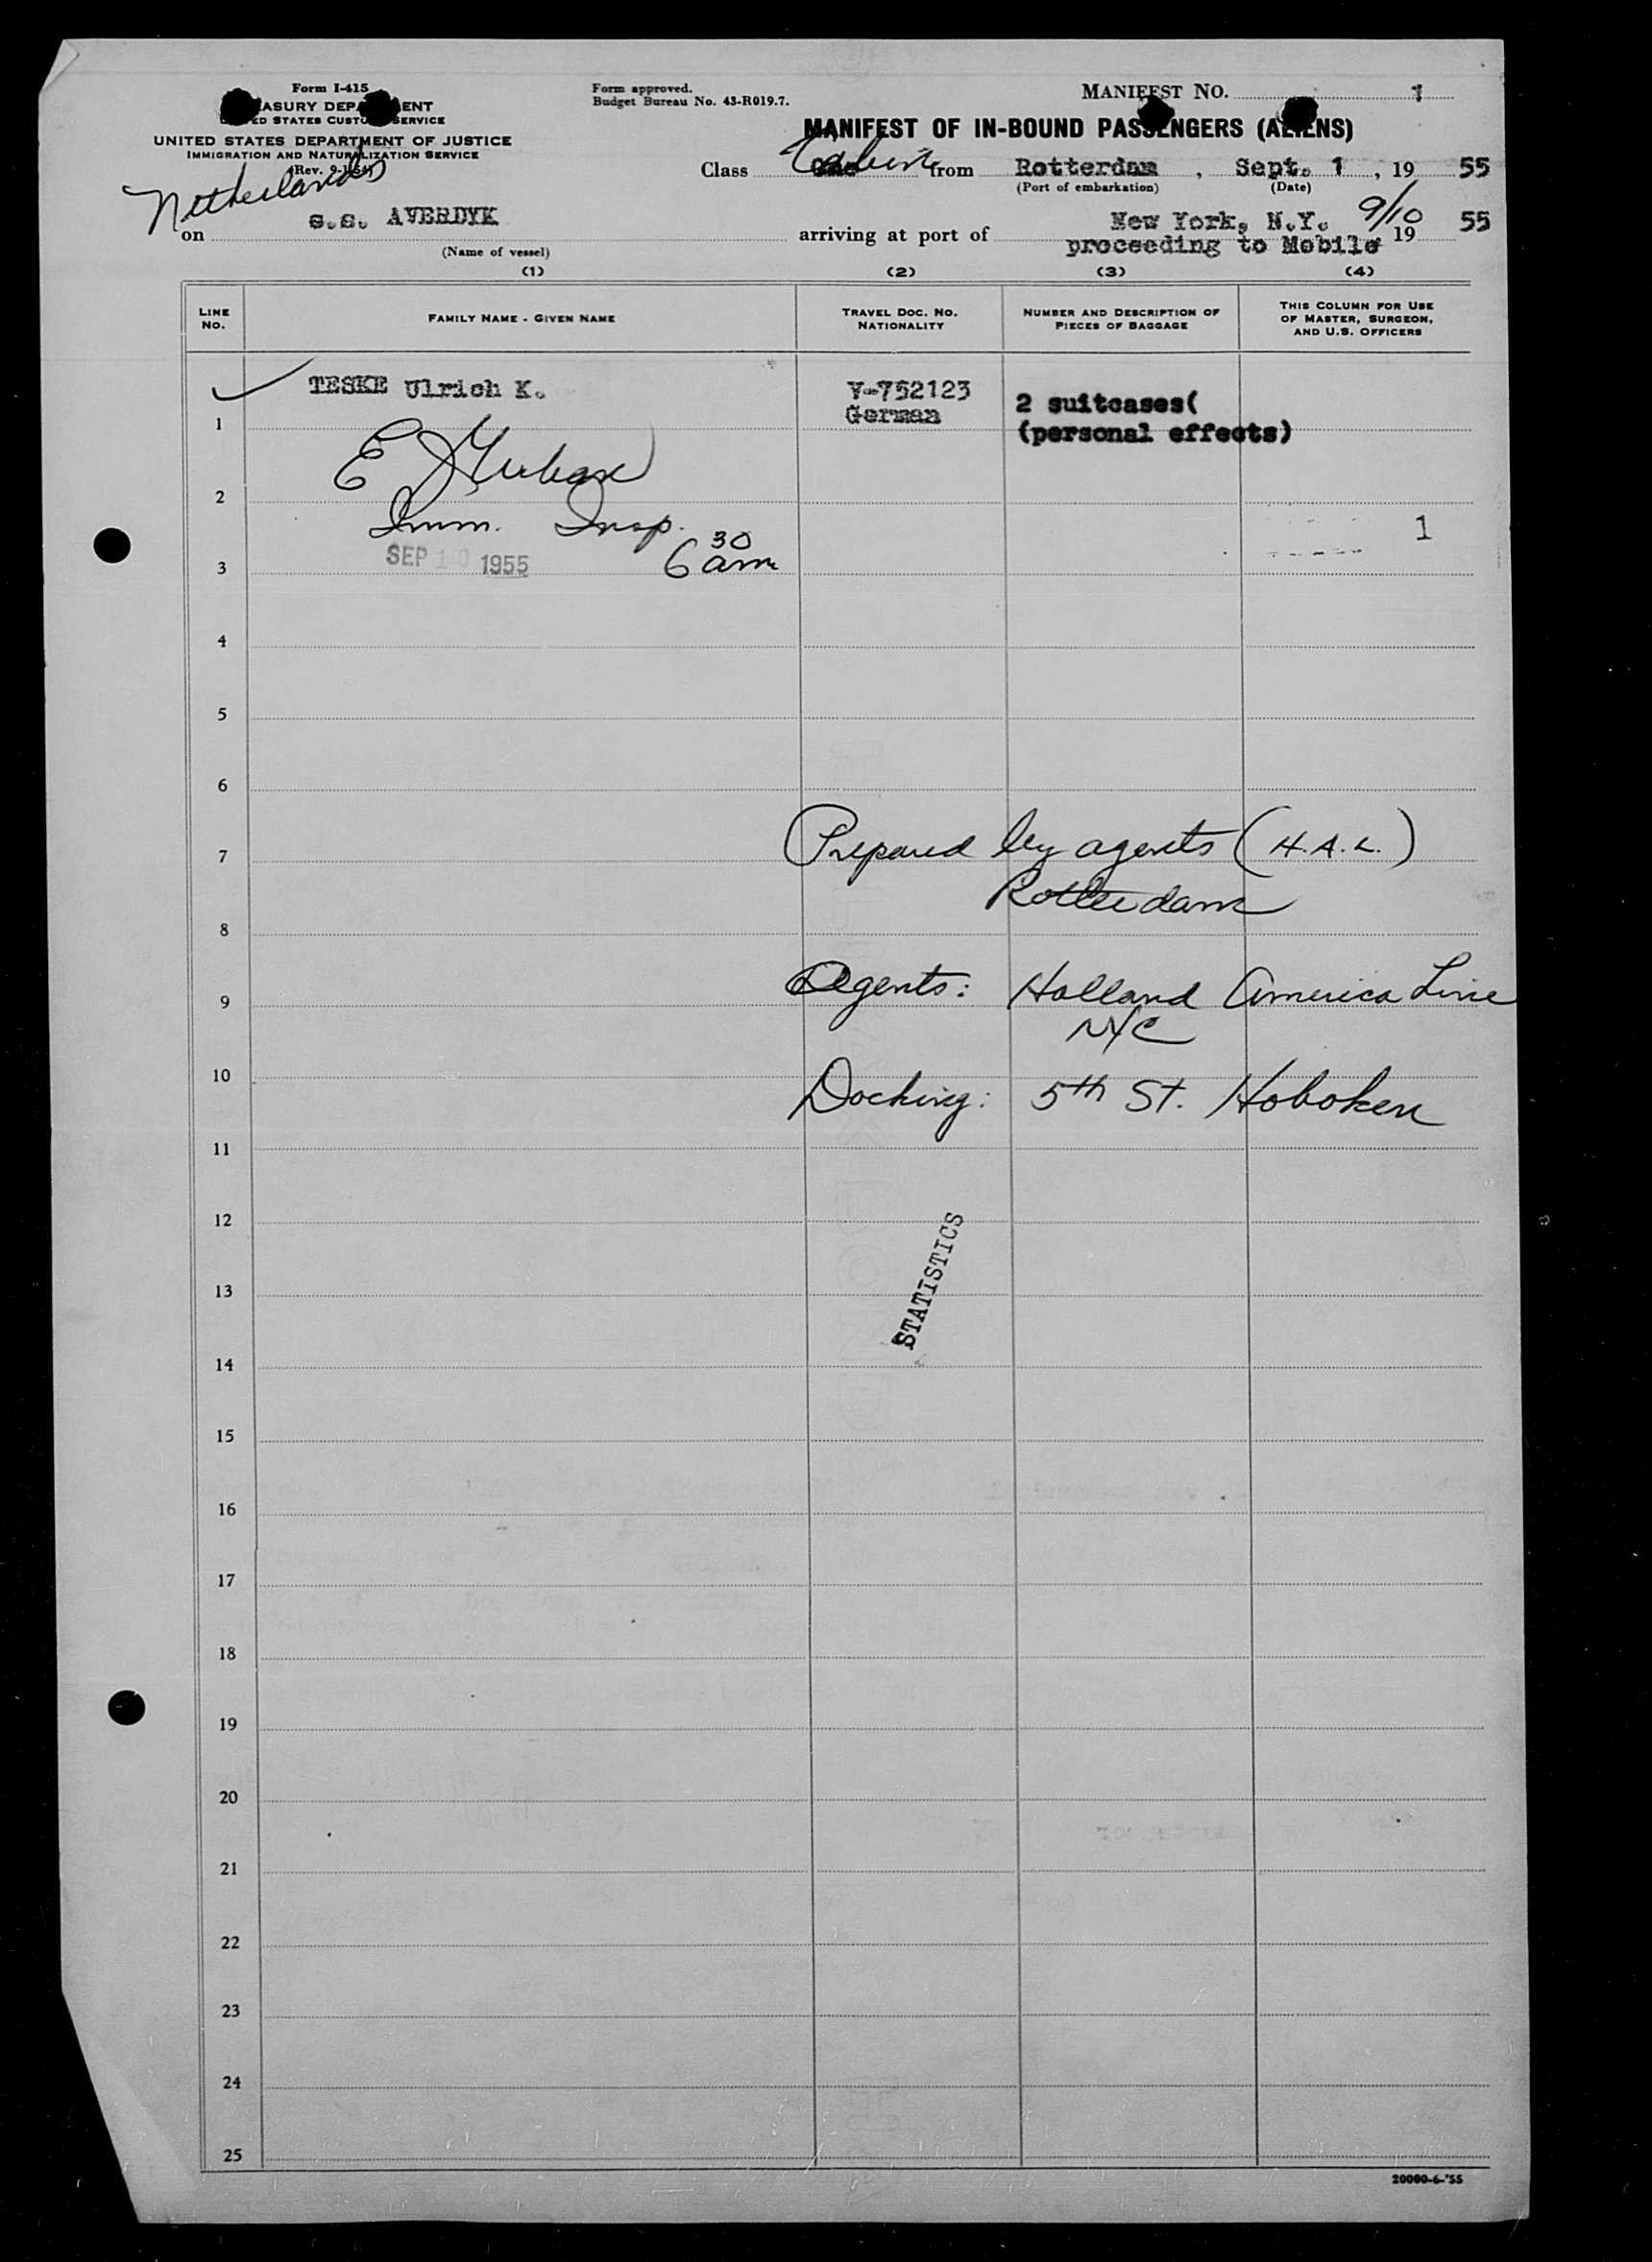 Form I-415
TREASURY DEPARTMENT
UNITED STATES CUSTOMS SERVICE
UNITED STATES DEPARTMENT OF JUSTICE
IMMIGRATION AND NATURALIZATION SERVICE
(Rev.
Netherlands
Form approved.
Budget Bureau No. 43-R019.7.
MANIFEST NO. 1
MANIFEST OF IN-BOUND PASSENGERS (ALIENS)
Class Cabin from Rotterdam, Sept. 1, 19 55
(Port of embarkation) (Date)
on s.s. AVERDYK arriving at port of New York, N.Y. 9/10 19 55
proceeding to Mobile
(Name of vessel)
(1) (2) (3) (4)
LINE NO.
FAMILY NAME - GIVEN NAME
TRAVEL DOC. NO. NATIONALITY
NUMBER AND DESCRIPTION OF PIECES OF BAGGAGE
THIS COLUMN FOR USE OF MASTER, SURGEON, AND U.S. OFFICERS
TESKE Ulrich K. V-752123 2 suitcases(
1 German (personal effects)
E
2
Imm. Insp. 1
3 SEP 10 1955 6 30 am
4
5
6
7 Prepared by agents (H.A.L.)
Rotterdam
8
9 Agents: Holland America Line
NYC
10
Docking: 5th St. Hoboken
11
12
STATISTICS
13
14
15
16
17
18
19
20
21
22
23
24
25
20000-6-'55